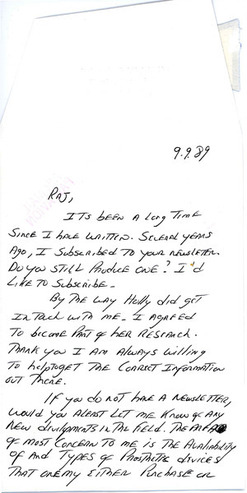 9.9.89
Raj,
Its been a long time
since I have written. Several years
ago, I subscribed to your newsletter.
Do you still produce one? I'd
like to subscribe.
By the way Holly did get
in touch with me. I agreed
to become part of her research.
Thank you I am always willing
to help get the correct information
out there.
If you do not have a newsletter,
would you at least let me know of any
new divelopments in the field. The area
of most concern to me is the availability
of and types of prosthetic divices
that one my either purchase or